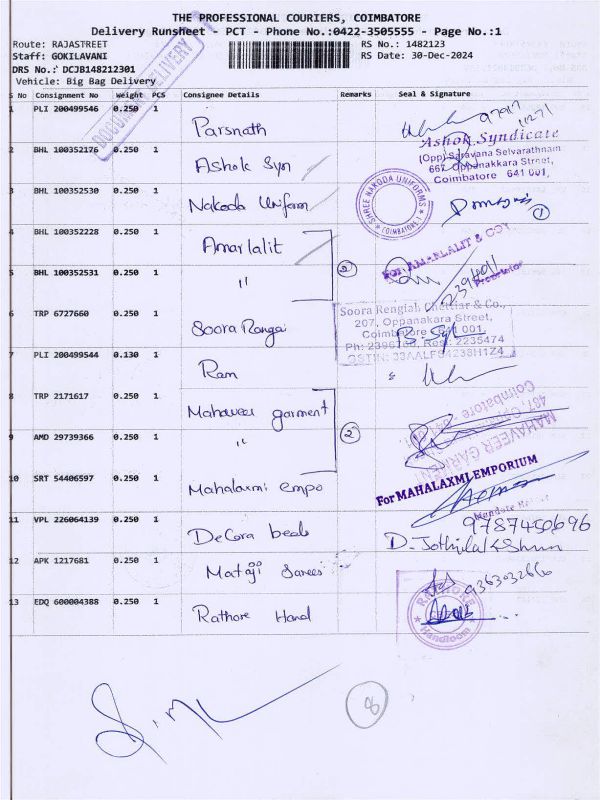 THE PROFESSIONAL COURIERS, COIMBATORE
Delivery Runsheet - PCT - Phone No.:0422-3505555 - Page No.:1
Route: RAJASTREET RS No.: 1482123
Staff: GOKILAVANI RS Date: 30-Dec-2024
DRS No.: DCJB148212301
Vehicle: Big Bag Delivery
S No Consignment No Weight PCS Consignee Details Remarks Seal & Signature
1 PLI 200499546 0.250 1 Parsnath
2 BHL 100352176 0.250 1 Ashok Syn
Ashok Syndicate
(Opp) Saravana Selvarathnam
667, Oppanakkara Street,
Coimbatore 641 001,
3 BHL 100352530 0.250 1 Nakoda Uniform
SHREE NAKODA UNIFORMS
(COIMBATORE)
1
4 BHL 100352228 0.250 1 Amar lalit
For AMARLALIT & CO
Proprietor
5 BHL 100352531 0.250 1 "
2
6 TRP 6727660 0.250 1 Soora Rangai
Soora Rengiah Chettiar & Co.,
207, Oppanakara Street,
Coimbatore 641 001.
2235474
7 PLI 200499544 0.130 1 Ram
8 TRP 2171617 0.250 1 Mahaveer garment
MAHAVEER GARMENT
Coimbatore
9 AMD 29739366 0.250 1 "
2
10 SRT 54406597 0.250 1 Mahalaxmi empo
For MAHALAXMI EMPORIUM
11 VPL 226064139 0.250 1 DeCora beds
9787450696
D. Jothilakshmi
12 APK 1217681 0.250 1 Mataji Sarees
13 EDQ 600004388 0.250 1 Rathore Hand
RATHORE
Handloom
8